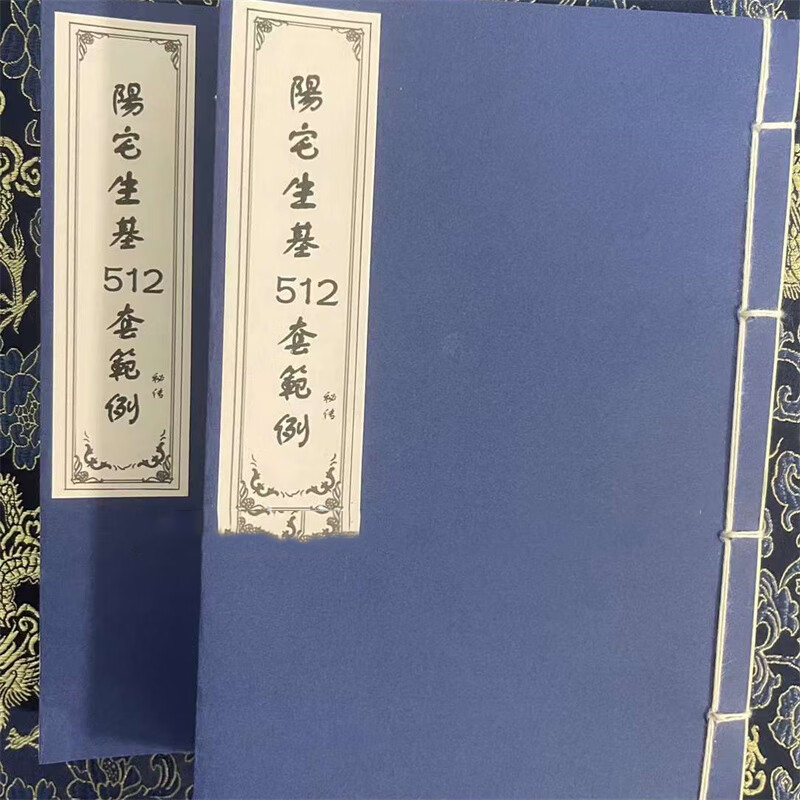 陽宅生基512套範例
秘传
陽宅生基512套範例
秘传